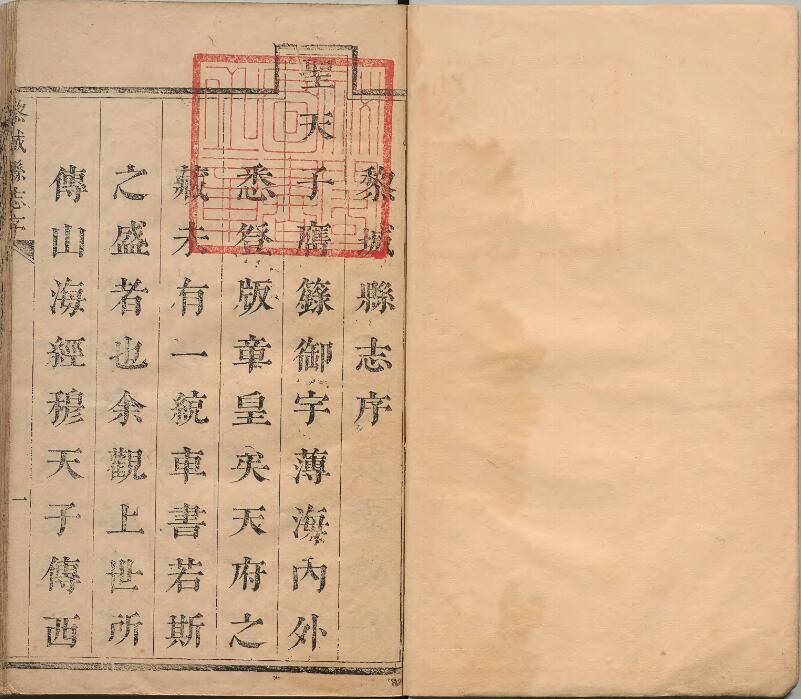 黎城縣志序
聖天子膺籙御宇薄海內外
悉登版章皇矣天府之
藏未有一統車書若斯
之盛者也余觀上世所
傳山海經穆天子傳西
黎城縣志序
一